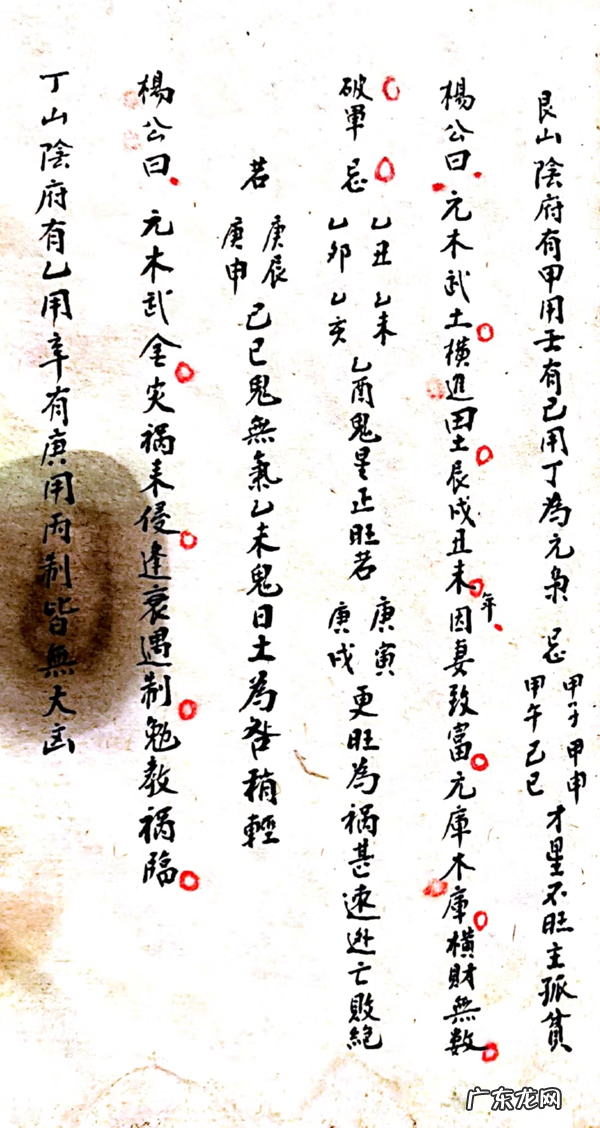 艮山陰府有甲用壬有己用丁為元梟 忌 甲子 甲申 甲午 己巳 才星不旺主孤貧
楊公曰 元木武土橫進田土辰戌丑未年因妻致富元庫木庫橫財無数
破軍 忌 乙丑 乙未 乙卯 乙亥 乙酉鬼星正旺若 庚寅 庚戌 更旺為禍甚速逃亡敗絕
若 庚辰 庚申 己巳鬼無氣乙未鬼日土為咎稍輕
楊公曰 元木武金災禍来侵逢衰遇制勉教禍臨
丁山陰府有乙用辛有庚用丙制皆無大凶
广东龙网